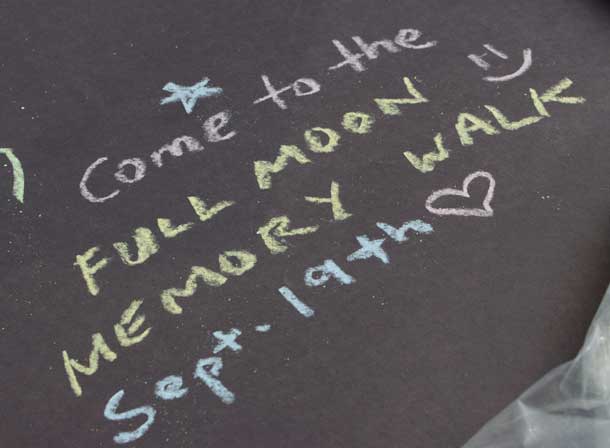 Come to the
FULL MOON
MEMORY WALK
Sept. 19th